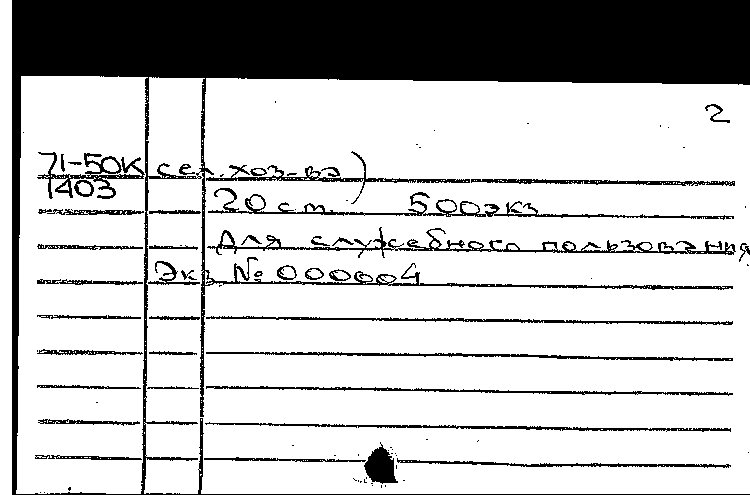 2
71-50К сел. хоз-ва)
1403
20 см. 500экз
Для служебного пользования
Экз № 000004